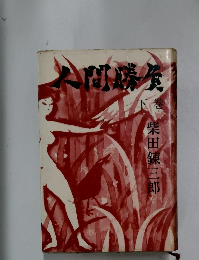 人間勝負
下巻
柴田錬三郎